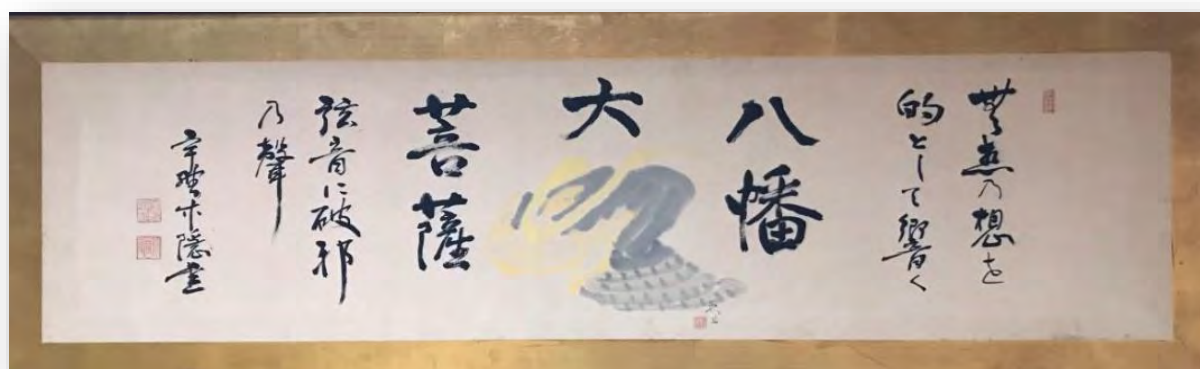 無為乃想を
的として響く
八幡
大
菩薩
弦音に破邪
乃聲
隠書